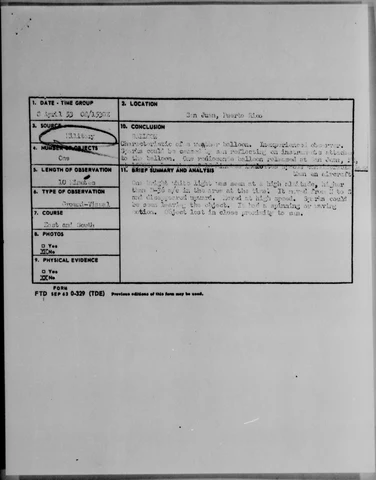 1. DATE - TIME GROUP
2. LOCATION
April 53 02/1530Z
San Juan, Puerto Rico
3. SOURCE
Military
10. CONCLUSION
BALLOON
Characteristic of a weather balloon. Inexperienced observer.
Sparks could be caused by sun reflecting on instruments attached
to the balloon. One radiosonde balloon released at San Juan,
4. NUMBER OF OBJECTS
One
than an aircraft
5. LENGTH OF OBSERVATION
10 Minutes
11. BRIEF SUMMARY AND ANALYSIS
One bright white light was seen at a high altitude, higher
than B-36 a/c in the area at the time. It moved from
and disappeared upward. Moved at high speed. Sparks could
be seen leaving the object. It had a spinning or waving
action. Object lost in close proximity to sun.
6. TYPE OF OBSERVATION
Ground-Visual
7. COURSE
East and South
8. PHOTOS
□ Yes
No
9. PHYSICAL EVIDENCE
□ Yes
No
FORM
FTD SEP 63 0-329 (TDE) Previous editions of this form may be used.